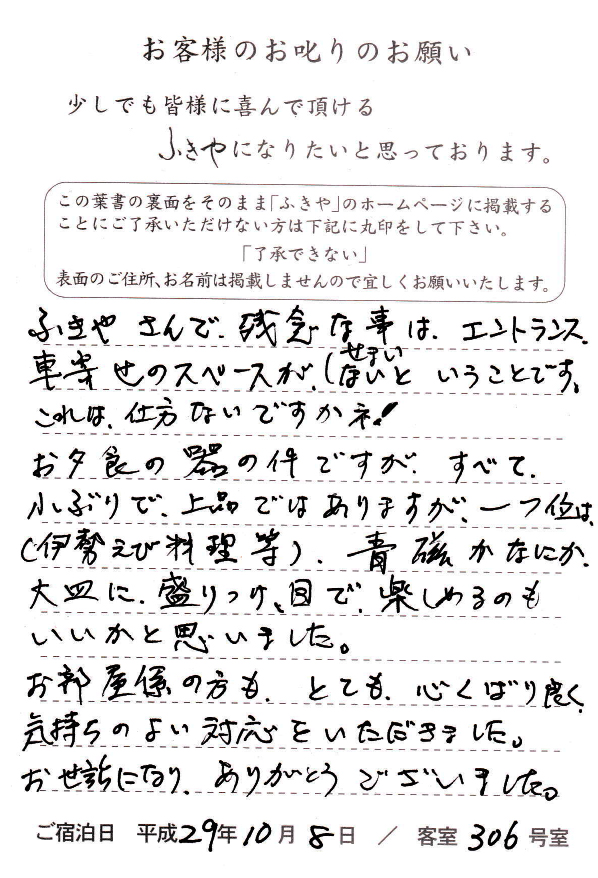 お客様のお叱りのお願い
少しでも皆様に喜んで頂ける
ふきやになりたいと思っております。
この葉書の裏面をそのまま「ふきや」のホームページに掲載する
ことにご了承いただけない方は下記に丸印をして下さい。
「了承できない」
表面のご住所、お名前は掲載しませんので宜しくお願いいたします。
ふきやさんで、残念な事は、エントランス、
車寄せのスペースが、(ないということです。
これは、仕方ないですかネ!
お夕食の器の件ですが、すべて、
小ぶりで、上品ではありますが、一つ位は、
(伊勢えび料理等)、青磁かなにか、
大皿に、盛りつけ、目で、楽しめるのも
いいかと思いました。
お部屋係の方も、とても、心くばり良く、
気持ちのよい対応をいただきました。
お世話になり、ありがとうございました。
ご宿泊日 平成29年10月8日 / 客室 306号室